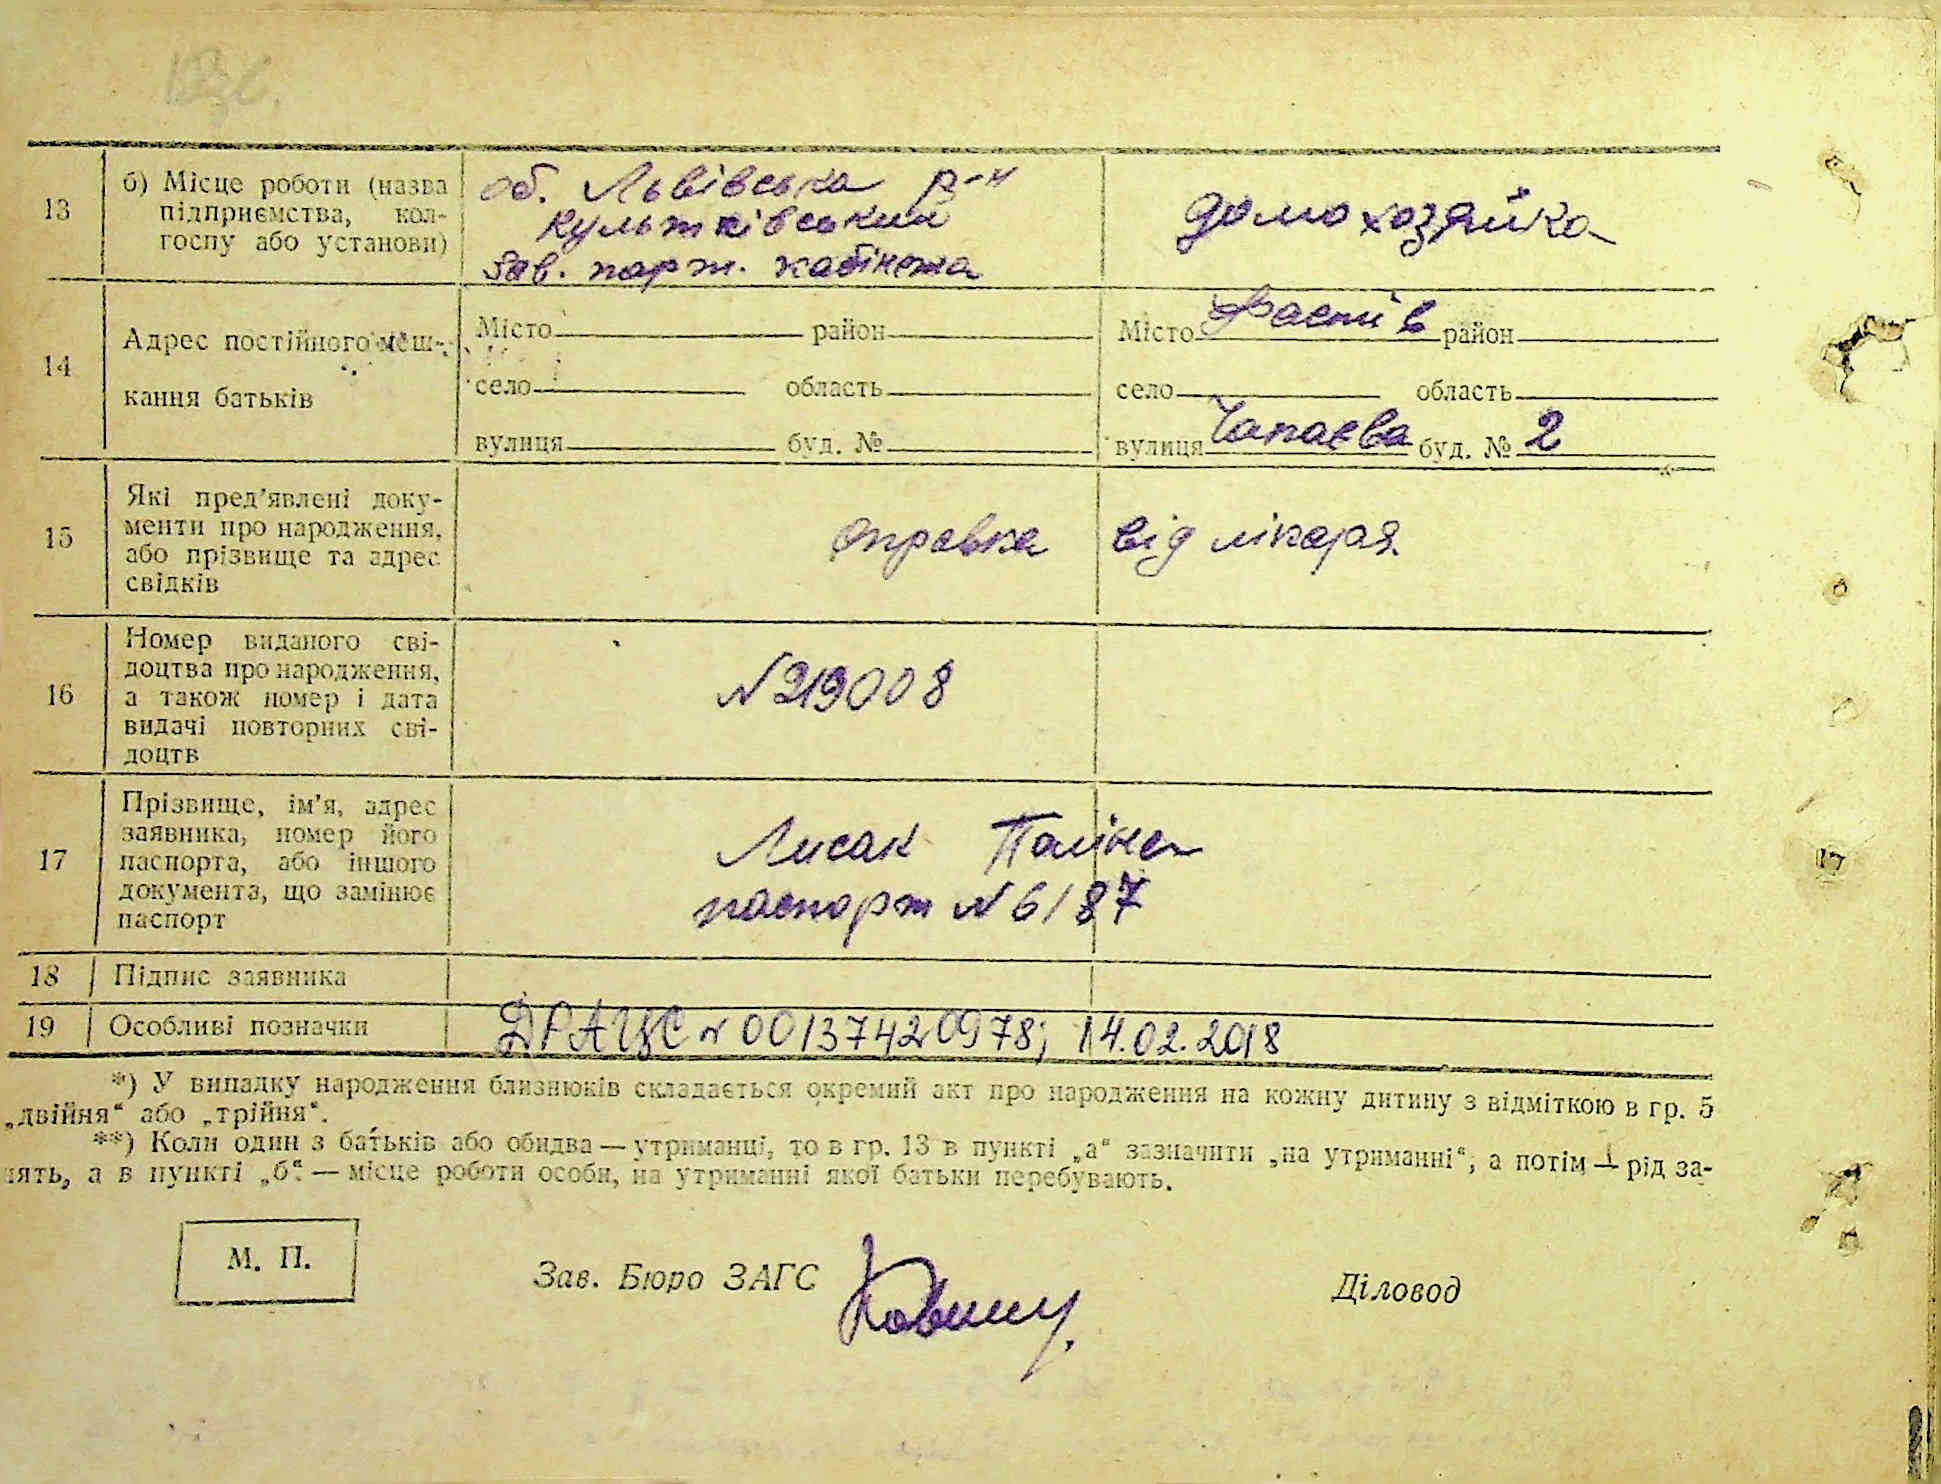 13
б) Місце роботи (назва
підприємства, кол-
госпу або установи)
об. Львівська р-н
Культківський
Зав. парт. кабінета
домохозяйка
14
Адрес постійного меш-
кання батьків
Місто район
село область
вулиця буд. №
Місто Фастів район
село область
вулиця Чапаєва буд. № 2
15
Які пред'явлені доку-
менти про народження,
або прізвище та адрес
свідків
справка від лікаря
16
Номер виданого сві-
доцтва про народження,
а також номер і дата
видачі повторних сві-
доцтв
N 219008
17
Прізвище, ім'я, адрес
заявника, номер його
паспорта, або іншого
документа, що замінює
паспорт
Лисак Поліна
паспорт N 6187
18 Підпис заявника
19 Особливі позначки
ДРАЦС N 00137420978; 14.02.2018
*) У випадку народження близнюків складається окремий акт про народження на кожну дитину з відміткою в гр. 5
„двійня“ або „трійня“.
**) Коли один з батьків або обидва — утриманці, то в гр. 13 в пункті „а“ зазначити „на утриманні“, а потім — рід за-
нять, а в пункті „б“ — місце роботи особи, на утриманні якої батьки перебувають.
М. П.
Зав. Бюро ЗАГС
Діловод